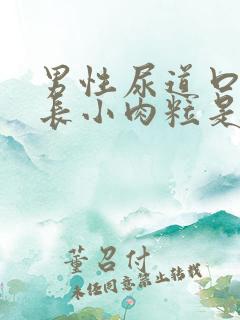 男性尿道口
长小肉粒是
董召付
未经同意禁止转载